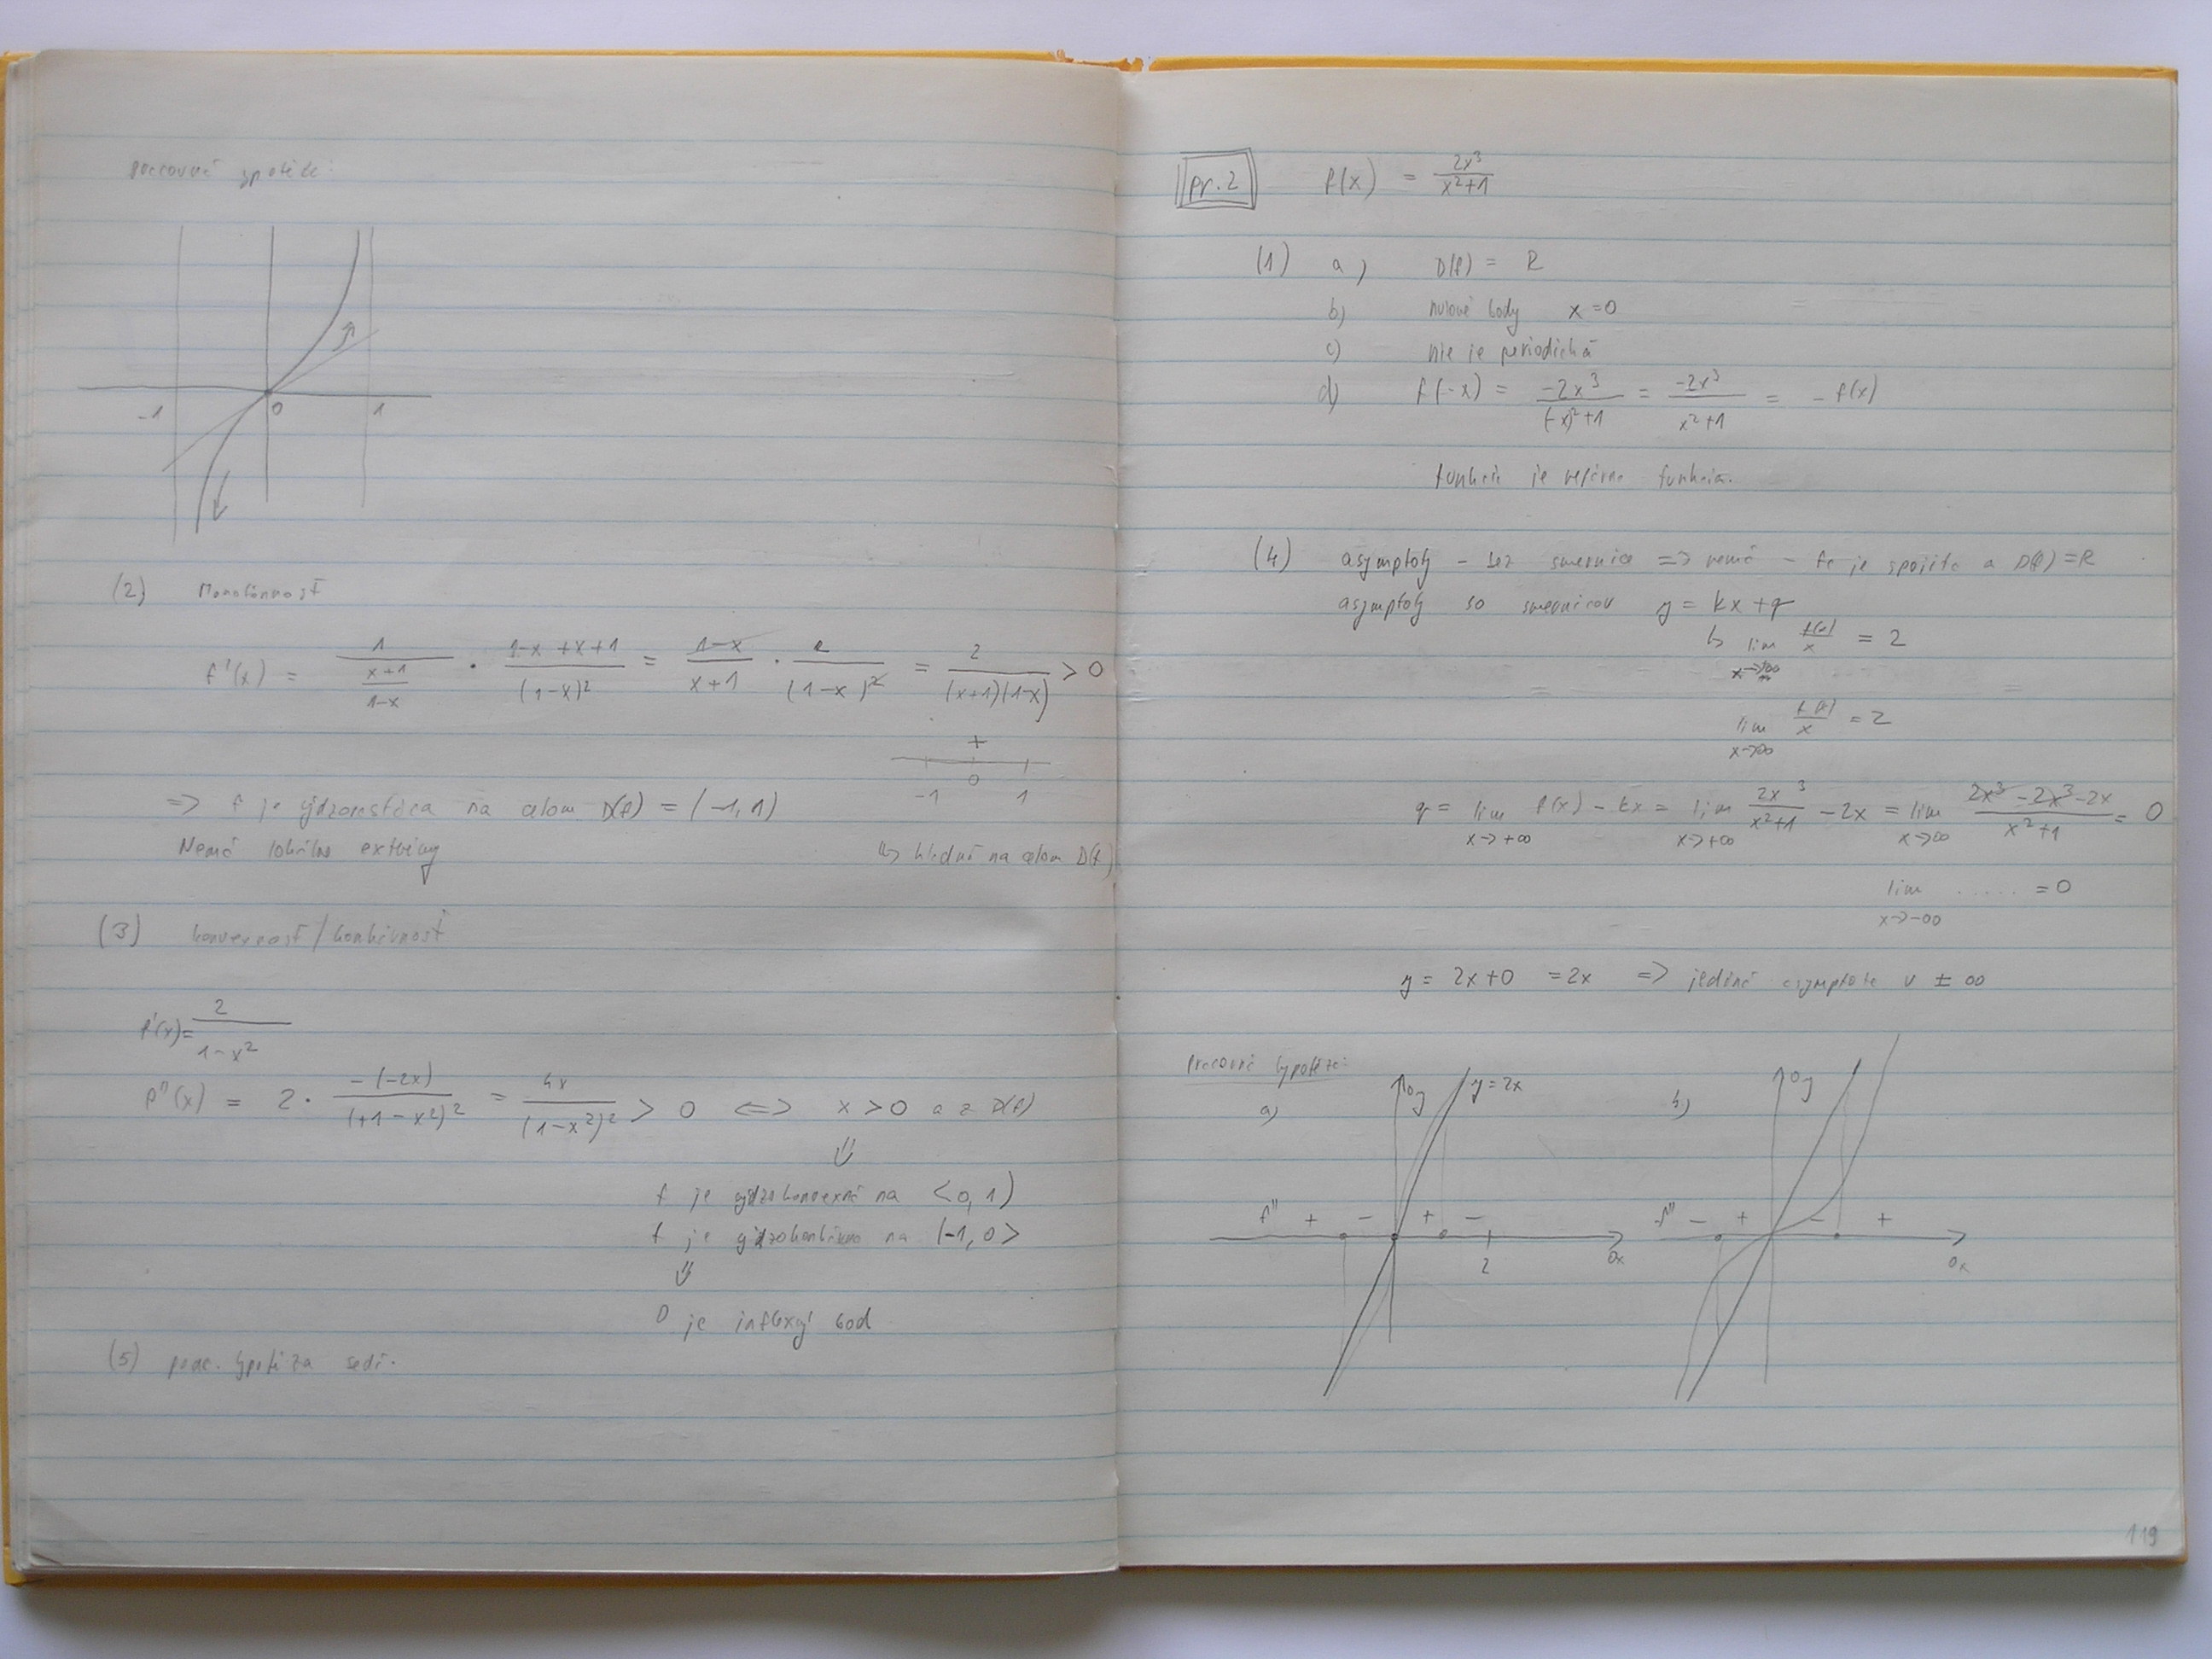 pracovná hypotéza:
-1 0 1
(2) Monotónnosť
f'(x) = 1/((x+1)/(1-x)) · (1-x+x+1)/(1-x)² = (1-x)/(x+1) · 2/(1-x)² = 2/((x+1)(1-x)) > 0
+
-1 0 1
=> f je rýdzorastúca na celom D(f) = (-1,1)
Nemá lokálne extrémy
↳ hladná na celom D(f)
(3) konvexnosť/konkávnosť
f'(x) = 2/(1-x²)
f''(x) = 2 · -(-2x)/(+1-x²)² = 4x/(1-x²)² > 0 <=> x > 0 a z D(f)
⇓
f je rýdzokonvexná na <0,1)
f je rýdzokonkávna na (-1,0>
⇓
0 je inflexný bod
(5) prac. hypotéza sedí.
pr. 2 f(x) = 2x³/(x²+1)
(1) a) D(f) = R
b) nulové body x = 0
c) nie je periodická
d) f(-x) = -2x³/((-x)²+1) = -2x³/(x²+1) = -f(x)
funkcia je nepárna funkcia.
(4) asymptoty - bez smernice => nemá - fa je spojitá a D(f) = R
asymptoty so smernicou y = kx + q
↳ lim f(x)/x = 2
lim x->∞ f(x)/x = 2
q = lim x->+∞ f(x) - kx = lim x->+∞ 2x³/(x²+1) - 2x = lim x->∞ (2x³-2x³-2x)/(x²+1) = 0
lim x->-∞ ..... = 0
y = 2x+0 = 2x => jediná asymptota v ± ∞
Pracovná hypotéza:
a) oy y = 2x
f'' + - + -
2 ox
b) oy
f'' - + - +
ox
119